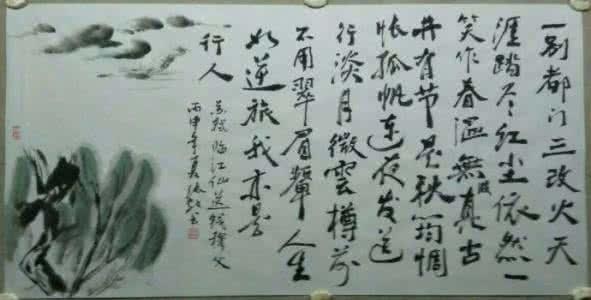 一别都门三改火天
涯踏尽红尘依然一
笑作春温無波真古
井有节是秋筠惆
怅孤帆连夜发送
行淡月微雲樽前
不用翠眉颦人生
如逆旅我亦是
行人
苏轼临江仙送钱穆父
丙申年夏书